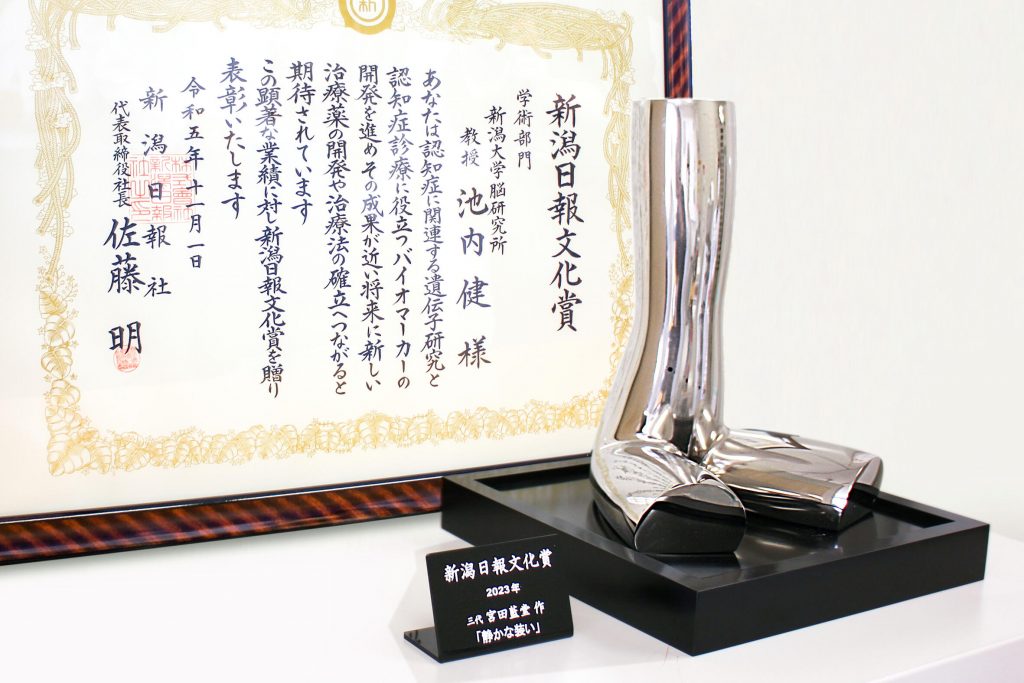 新潟日報文化賞
学術部門
新潟大学脳研究所
教授 池内 健 様
あなたは認知症に関連する遺伝子研究と
認知症診療に役立つバイオマーカーの
開発を進め その成果が近い将来に新しい
治療薬の開発や治療法の確立へつながると
期待されています
この顕著な業績に対し新潟日報文化賞を贈り
表彰いたします
令和五年十一月一日
新潟日報社
代表取締役社長 佐藤 明
新潟日報文化賞
2023年
三代 宮田藍堂 作
「静かな装い」